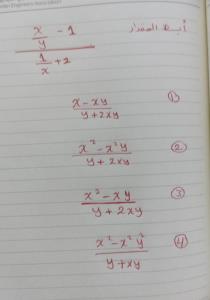 أبسط المقدار
\frac{\frac{x}{y} - 1}{\frac{1}{x} + 2}
① \frac{x - xy}{y + 2xy}
② \frac{x^2 - x^2y}{y + 2xy}
③ \frac{x^2 - xy}{y + 2xy}
④ \frac{x^2 - x^2y^2}{y + xy}